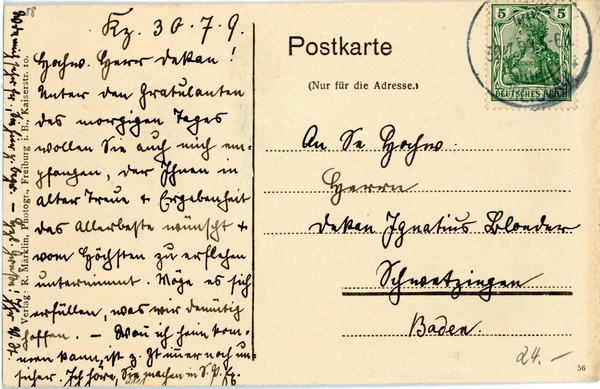 Kz. 30.7.9.
Hochw. Herr Dekan!
Unter den Gratulanten
des morgigen Tages
wollen Sie auch mich em-
pfangen, der Ihnen in
alter Treue + Ergebenheit
das Allerbeste wünscht +
vom Höchsten zu erflehen
unternimmt. Möge es sich
erfüllen, was wir demütig
hoffen. – Wann ich heim kom-
men kann, ist z. Zt immer noch un-
sicher. Ich höre, Sie machen in S. P.
Verlag: R. Märklin, Photogr., Freiburg i. B., Kaiserstr. 10.
Postkarte
(Nur für die Adresse.)
5 5
DEUTSCHES REICH
An Se Hochw.
Herrn
Dekan Ignatius Bloeder
Schwetzingen
Baden.
24.–
56